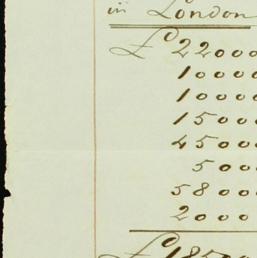 in London
£ 22000
10000
10000
15000
45000
5000
58000
2000